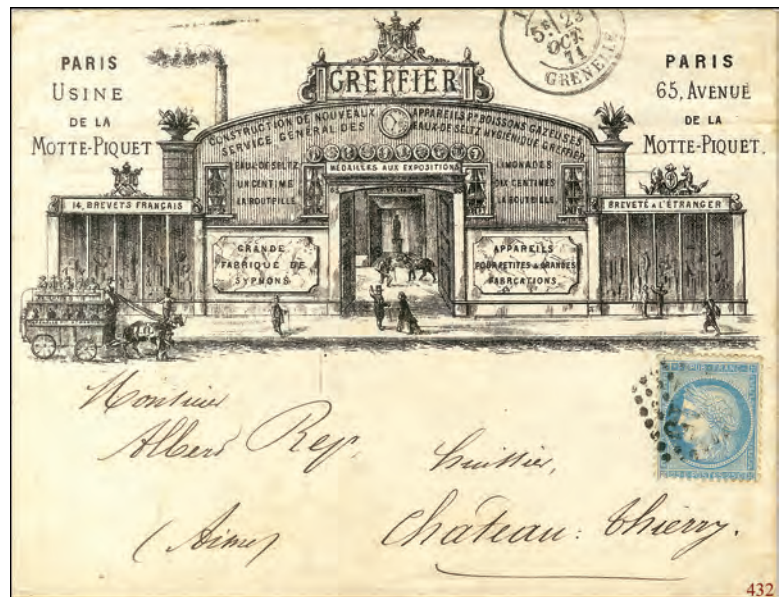 PARIS
USINE
DE LA
MOTTE-PIQUET
5E/23
OCT.
71
GRENELLE
GREFFIER
PARIS
65, AVENUE
DE LA
MOTTE-PIQUET.
CONSTRUCTION DE NOUVEAUX APPAREILS Pr BOISSONS GAZEUSES
SERVICE GENERAL DES EAUX-DE-SELTZ HYGIÉNIQUE GREFFIER
MÉDAILLES AUX EXPOSITIONS
EAUX-DE-SELTZ
UN CENTIME
LA BOUTEILLE
LIMONADES
DIX CENTIMES
LA BOUTEILLE
14, BREVETS FRANÇAIS
BREVETÉ A L'ÉTRANGER
GRANDE
FABRIQUE DE
SYPHONS
APPAREILS
POUR PETITES & GRANDES
FABRICATIONS.
REPUB. FRANC.
Monsieur
Albert Rep. huissier,
(Aisne) Château-Thierry.
432